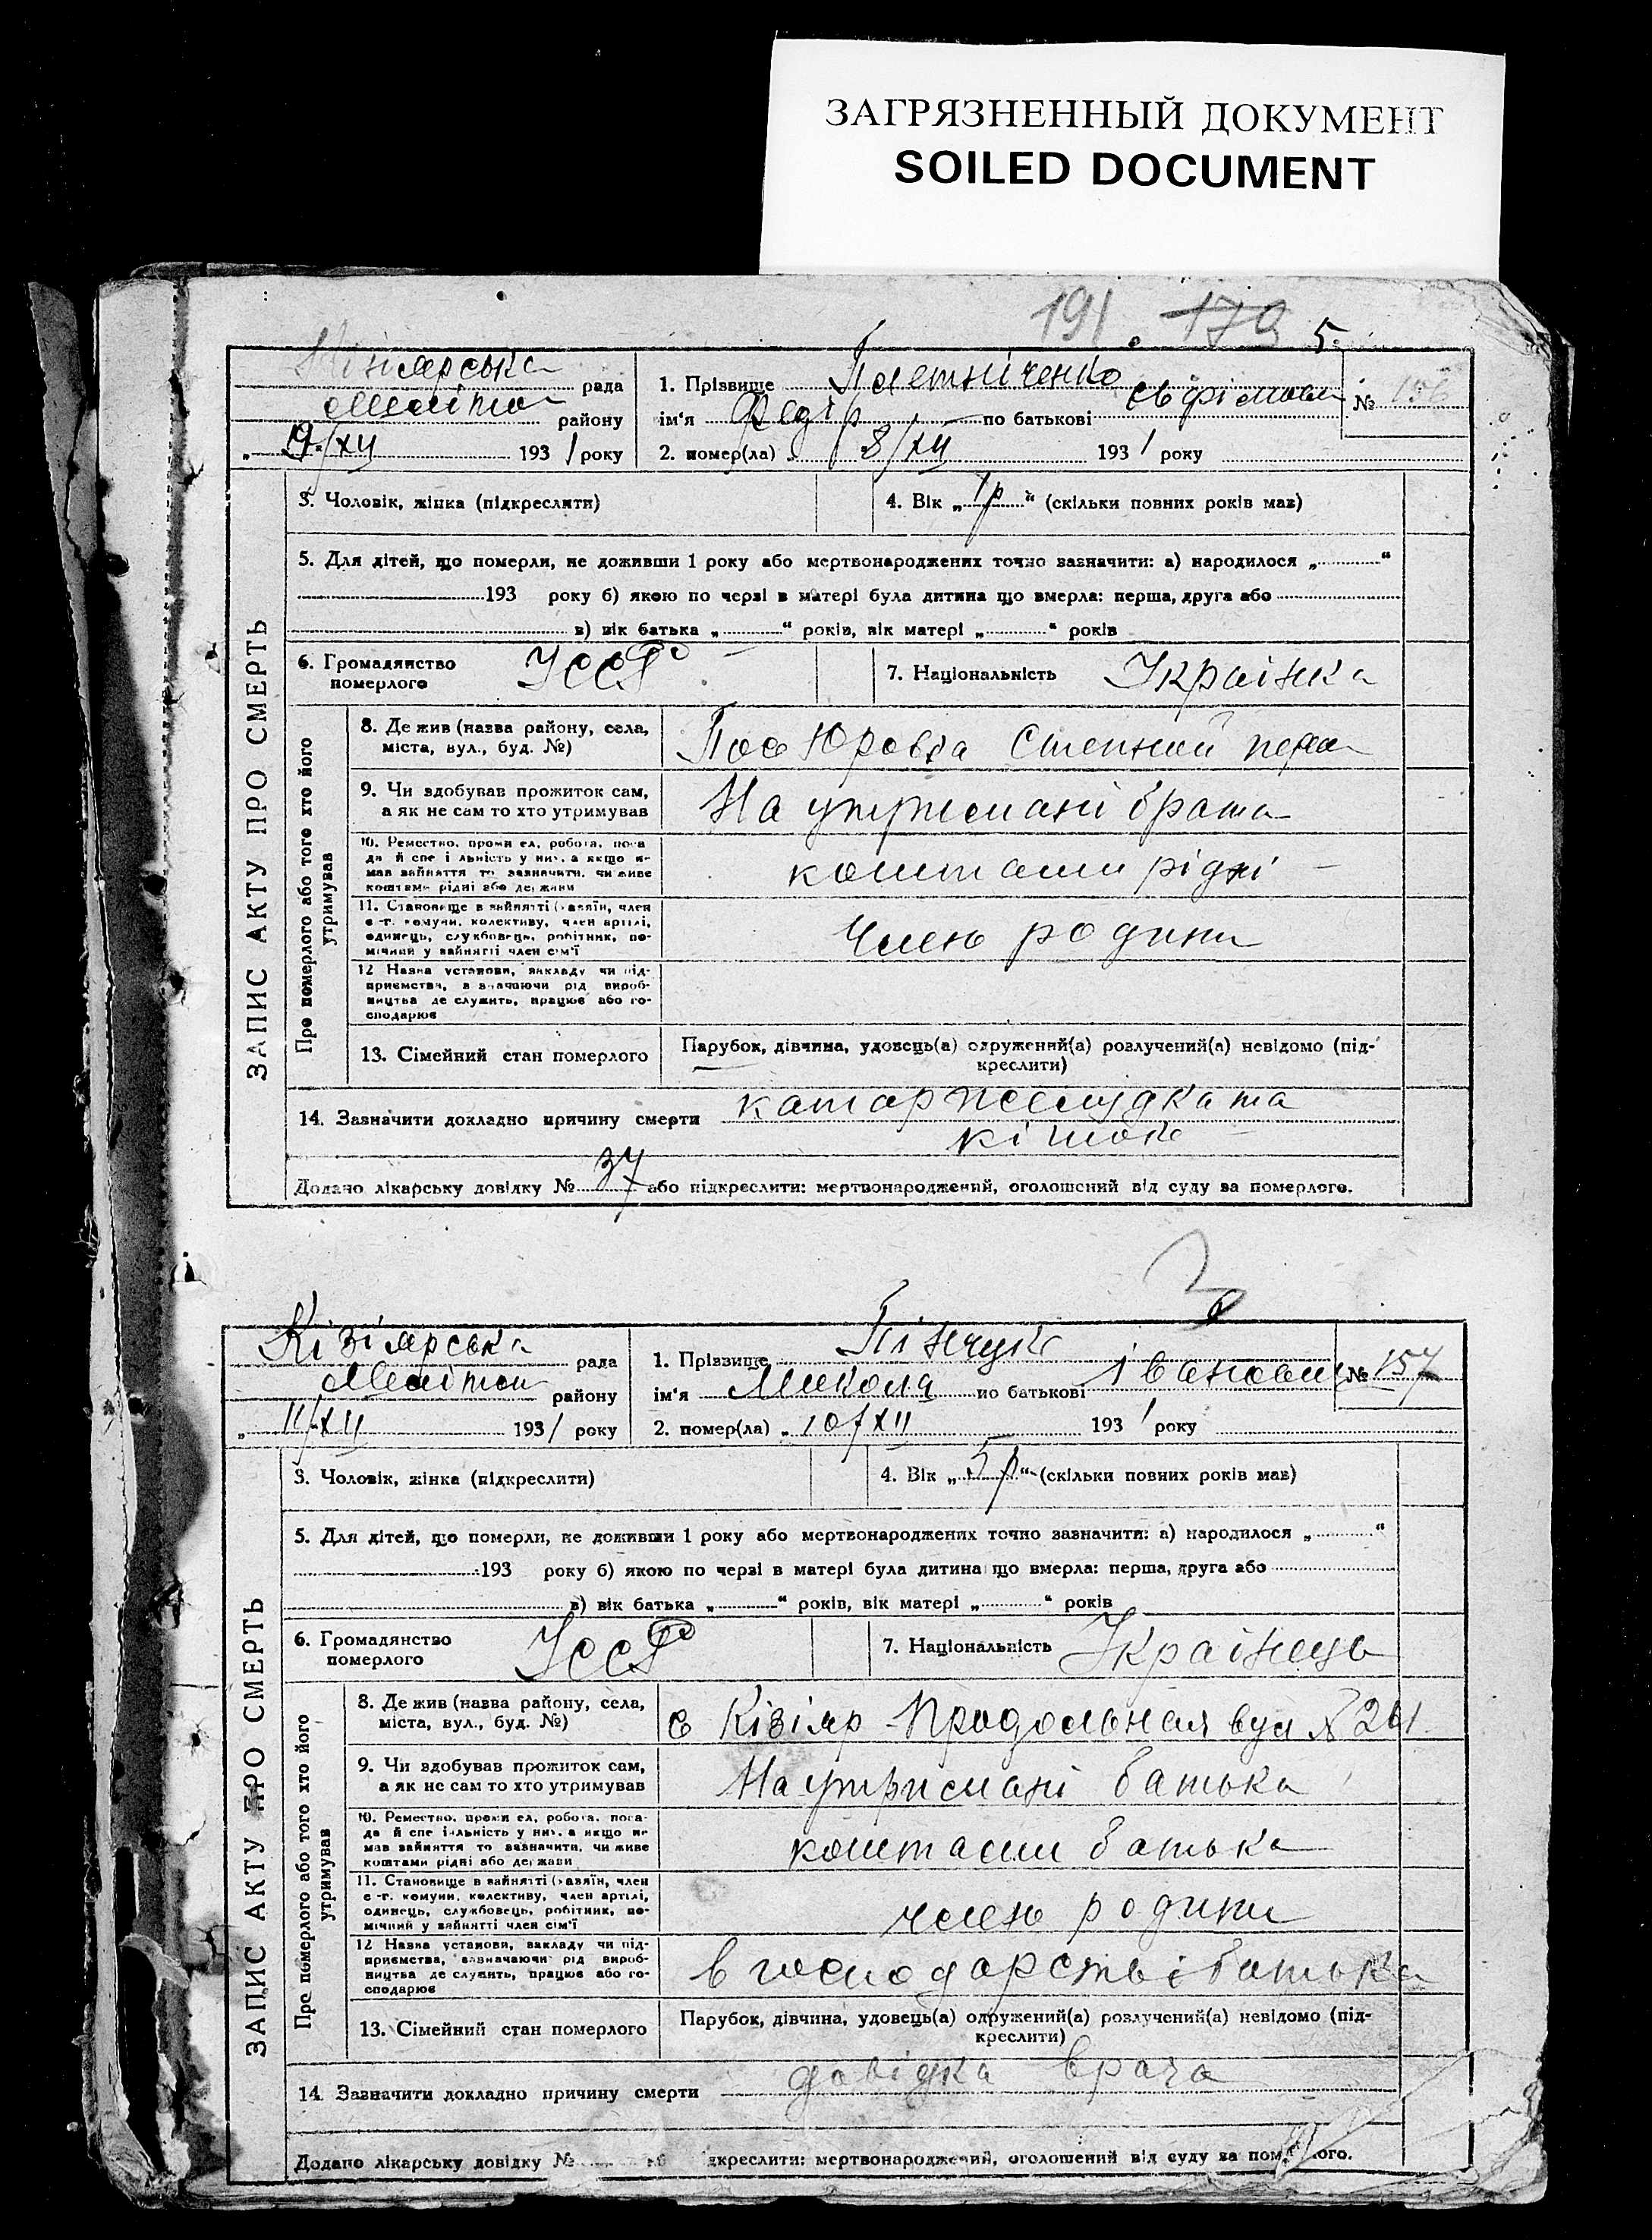 ЗАГРЯЗНЕННЫЙ ДОКУМЕНТ
SOILED DOCUMENT
191 179 5.
Кізіярська рада
Меліт району
9/XII 1931 року
1. Прізвище
ім'я Федір по батькові
2. номер(ла) 8/XII 1931 року
№ 156
ЗАПИС АКТУ ПРО СМЕРТЬ
3. Чоловік, жінка (підкреслити)
4. Вік „1 р“ (скільки повних років мав)
5. Для дітей, що померли, не доживши 1 року або мертвонароджених точно зазначити: а) народилося „ “
193 року б) якою по черзі в матері була дитина що вмерла: перша, друга або
в) вік батька „ “ років, вік матері „ “ років
6. Громадянство померлого УССР
7. Національність Украінка
Про померлого або того хто його утримував
8. Де жив (назва району, села,
міста, вул., буд. №)
Пос Юровка Степний
9. Чи здобував прожиток сам,
а як не сам то хто утримував
На утримані брата
10. Ремество, промисел, робота, поса-
да й спеціальність у них, а якщо не
мав зайняття то зазначити, чи живе
коштами рідні або держави
коштами рідні
11. Становище в зайнятті (хазяїн, член
с-г. комуни, колективу, член артілі,
одинець, службовець, робітник, по-
мічний у зайнятті член сім'ї
Член родини
12 Назва установи, закладу чи під-
приємства, зазначаючи рід вироб-
ництва де служить, працює або го-
сподарює
13. Сімейний стан померлого
Парубок, дівчина, удовець(а) одружений(а) розлучений(а) невідомо (під-
креслити)
14. Зазначити докладно причину смерти катар желудка та
кішок
Додано лікарську довідку № 37 або підкреслити: мертвонароджений, оголошений від суду за померлого.
Кізіярська рада
Меліт району
11/XII 1931 року
1. Прізвище Пінчук
ім'я Микола по батькові Іванович
2. помер(ла) „ 10/XII 1931 року
№ 157
ЗАПИС АКТУ ПРО СМЕРТЬ
3. Чоловік, жінка (підкреслити)
4. Вік „5 р“ (скільки повних років мав)
5. Для дітей, що померли, не доживши 1 року або мертвонароджених точно зазначити: а) народилося „ “
193 року б) якою по черзі в матері була дитина що вмерла: перша, друга або
в) вік батька „ “ років, вік матері „ “ років
6. Громадянство померлого УССР
7. Національність Украінець
Про померлого або того хто його утримував
8. Де жив (назва району, села,
міста, вул., буд. №)
с Кізіяр Продольная вул № 261
9. Чи здобував прожиток сам,
а як не сам то хто утримував
На утримані батька
10. Ремество, промисел, робота, поса-
да й спеціальність у них, а якщо не
мав зайняття то зазначити, чи живе
коштами рідні або держави
коштами батька
11. Становище в зайнятті (хазяїн, член
с-г. комуни, колективу, член артілі,
одинець, службовець, робітник, по-
мічний у зайнятті член сім'ї
член родини
12 Назва установи, закладу чи під-
приємства, зазначаючи рід вироб-
ництва де служить, працює або го-
сподарює
в господарстві батька
13. Сімейний стан померлого
Парубок, дівчина, удовець(а) одружений(а) розлучений(а) невідомо (під-
креслити)
14. Зазначити докладно причину смерти довідка врача
Додано лікарську довідку № дкреслити: мертвонароджений, оголошений від суду за пом ого.